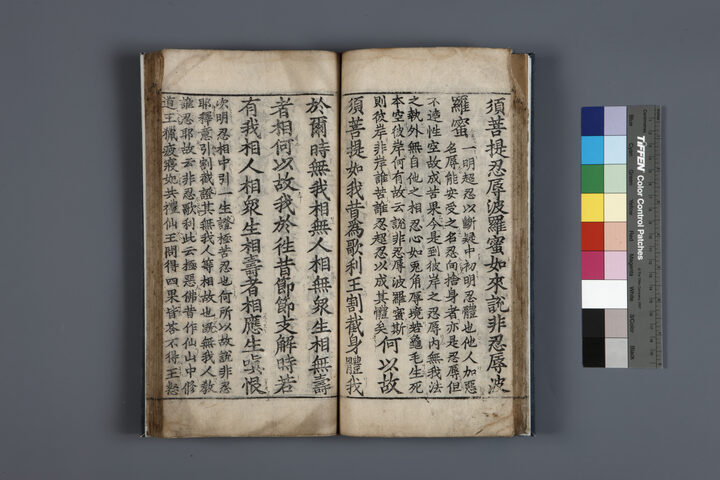 須菩提忍辱波羅蜜如來說非忍辱波
羅蜜
一明超忍以斷疑中初明忍體也他人加惡
名辱能安受之名忍向捨身者亦是忍辱但
不達性空故成苦果今是到彼岸之忍辱內無我法
之執外無自他之相忍心如兎角辱境若龜毛生死
本空彼岸何有故云說非忍辱波羅蜜斯
則彼岸非岸誰苦誰忍超忍以成其體矣
何以故
須菩提如我昔為歌利王割截身體我
於爾時無我相無人相無衆生相無壽
者相何以故我於徃昔節節支解時若
有我相人相衆生相壽者相應生嗔恨
次明忍相中引一生證極苦忍也何所以故說非忍
耶釋意引割截證其無我人等相故也旣無我人教
誰忍耶故云非忍歌利此云極惡佛昔作仙山中修
道王獵疲寢妃共禮仙王問得四果皆荅不得王怒
TIFFEN Color Control Patches
Blue
Cyan
Green
Yellow
Red
Magenta
White
3/Color
Black